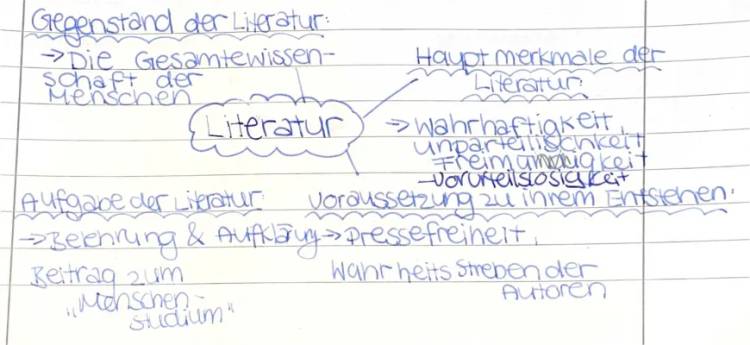 Gegenstand der Literatur:
→ Die Gesamtewissen-
schaft der
Menschen
Hauptmerkmale der
Literatur:
Literatur
→ Wahrhaftigkeit,
Unparteilischkeit
Freimündigkeit
- Vorurteilslosigkeit
Aufgabe der Literatur:
→ Belehrung & Aufklärung
Beitrag zum
„Menschen-
studium"
Voraussetzung zu ihrem Entstehen:
→ Pressefreiheit,
Wahrheits Streben der
Autoren